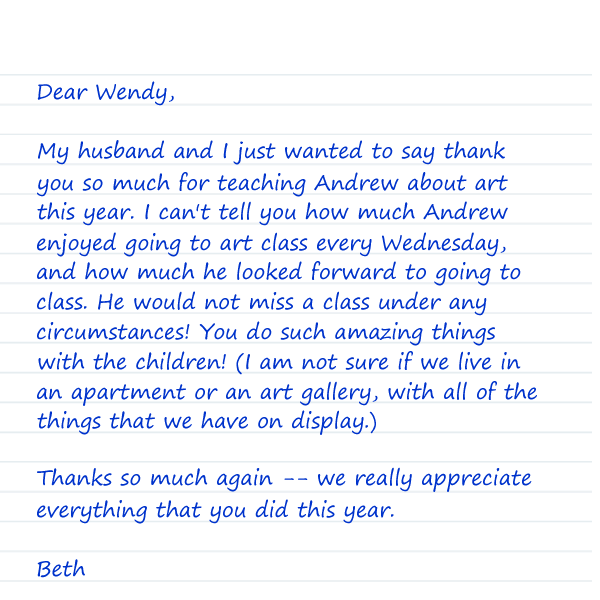 Dear Wendy,
My husband and I just wanted to say thank
you so much for teaching Andrew about art
this year. I can't tell you how much Andrew
enjoyed going to art class every Wednesday,
and how much he looked forward to going to
class. He would not miss a class under any
circumstances! You do such amazing things
with the children! (I am not sure if we live in
an apartment or an art gallery, with all of the
things that we have on display.)
Thanks so much again -- we really appreciate
everything that you did this year.
Beth